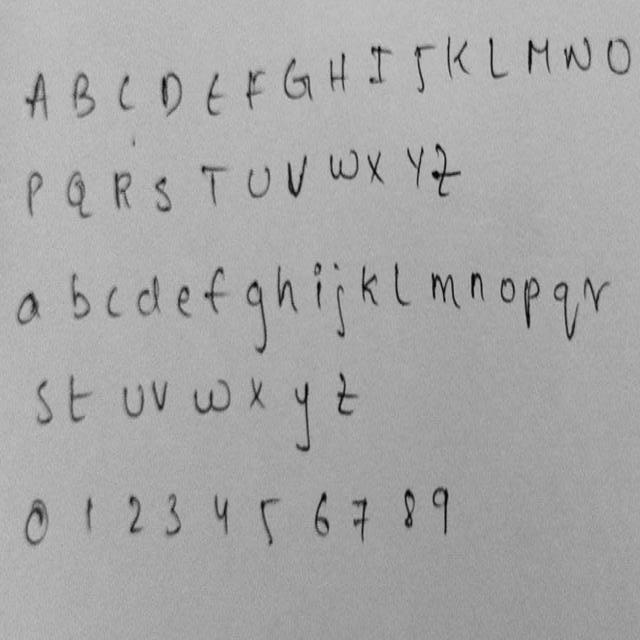 A B C D E F G H I J K L M N O
P Q R S T U V W X Y Z
a b c d e f g h i j k l m n o p q r
s t u v w x y z
0 1 2 3 4 5 6 7 8 9